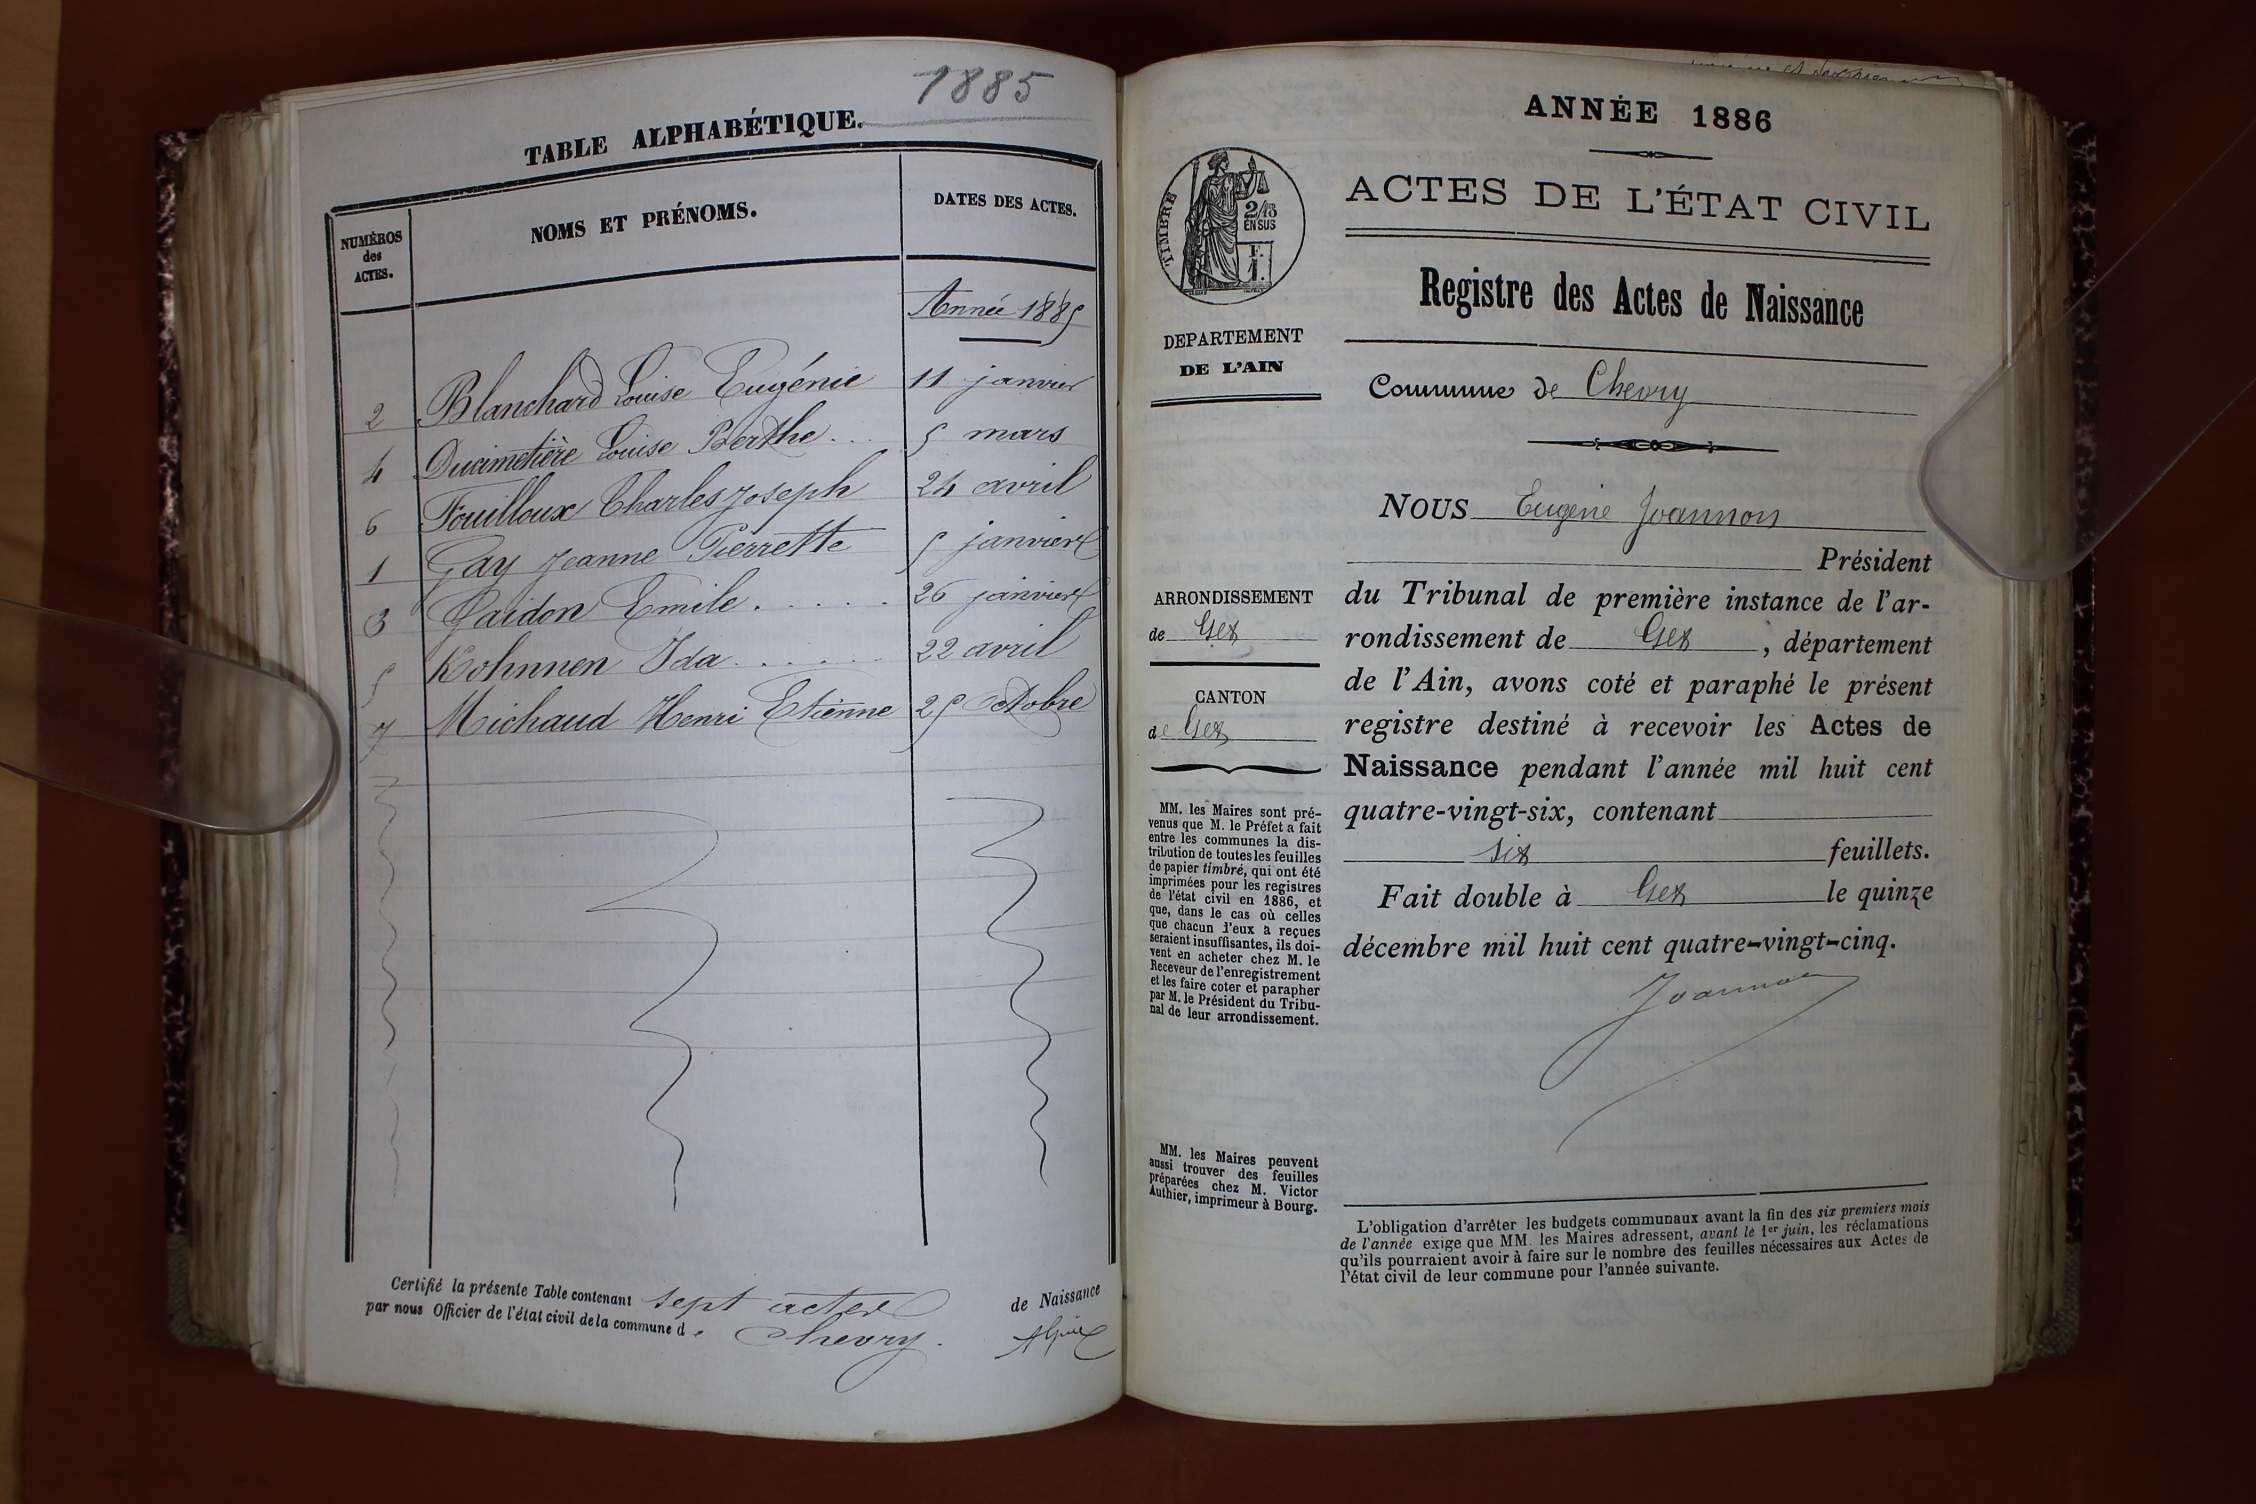 1885
TABLE ALPHABÉTIQUE.
NUMÉROS
des
ACTES.
NOMS ET PRÉNOMS.
DATES DES ACTES.
Année 1885
2 Blanchard Louise Eugénie 11 janvier
4 Ducimetière Louise Berthe... 5 mars
6 Fouilloux Charles Joseph 24 avril
1 Gay Jeanne Pierrette 5 janvier
3 Gaidon Emile..... 26 janvier
5 Kohnnen Ida...... 22 avril
7 Michaud Henri Etienne 25 octobre
Certifié la présente Table contenant sept actes de Naissance
par nous Officier de l'état civil de la commune de Chevry.
ANNÉE 1886
ACTES DE L'ÉTAT CIVIL
TIMBRE
2/13
EN SUS
F.
1.
Registre des Actes de Naissance
DEPARTEMENT
DE L'AIN
Commune de Chevry
NOUS Eugène Joannon
Président
du Tribunal de première instance de l'ar-
rondissement de Gex, département
de l'Ain, avons coté et paraphé le présent
registre destiné à recevoir les Actes de
Naissance pendant l'année mil huit cent
quatre-vingt-six, contenant
six feuillets.
Fait double à Gex le quinze
décembre mil huit cent quatre-vingt-cinq.
Joannon
ARRONDISSEMENT
de Gex
CANTON
de Gex
MM. les Maires sont pré-
venus que M. le Préfet a fait
entre les communes la dis-
tribution de toutes les feuilles
de papier timbré, qui ont été
imprimées pour les registres
de l'état civil en 1886, et
que, dans le cas où celles
que chacun d'eux a reçues
seraient insuffisantes, ils doi-
vent en acheter chez M. le
Receveur de l'enregistrement
et les faire coter et parapher
par M. le Président du Tribu-
nal de leur arrondissement.
MM. les Maires peuvent
aussi trouver des feuilles
préparées chez M. Victor
Authier, imprimeur à Bourg.
L'obligation d'arrêter les budgets communaux avant la fin des six premiers mois
de l'année exige que MM. les Maires adressent, avant le 1er juin, les réclamations
qu'ils pourraient avoir à faire sur le nombre des feuilles nécessaires aux Actes de
l'état civil de leur commune pour l'année suivante.